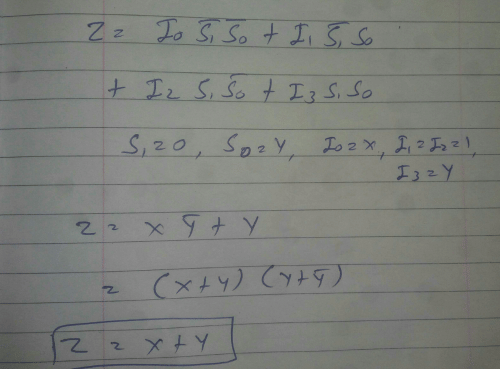 Z = I0 S̅1 S̅0 + I1 S̅1 S0
+ I2 S1 S̅0 + I3 S1 S0
S1 = 0, S0 = Y, I0 = X, I1 = I2 = 1,
I3 = Y
Z = X Y̅ + Y
= (X+Y) (Y+Y̅)
Z = X+Y